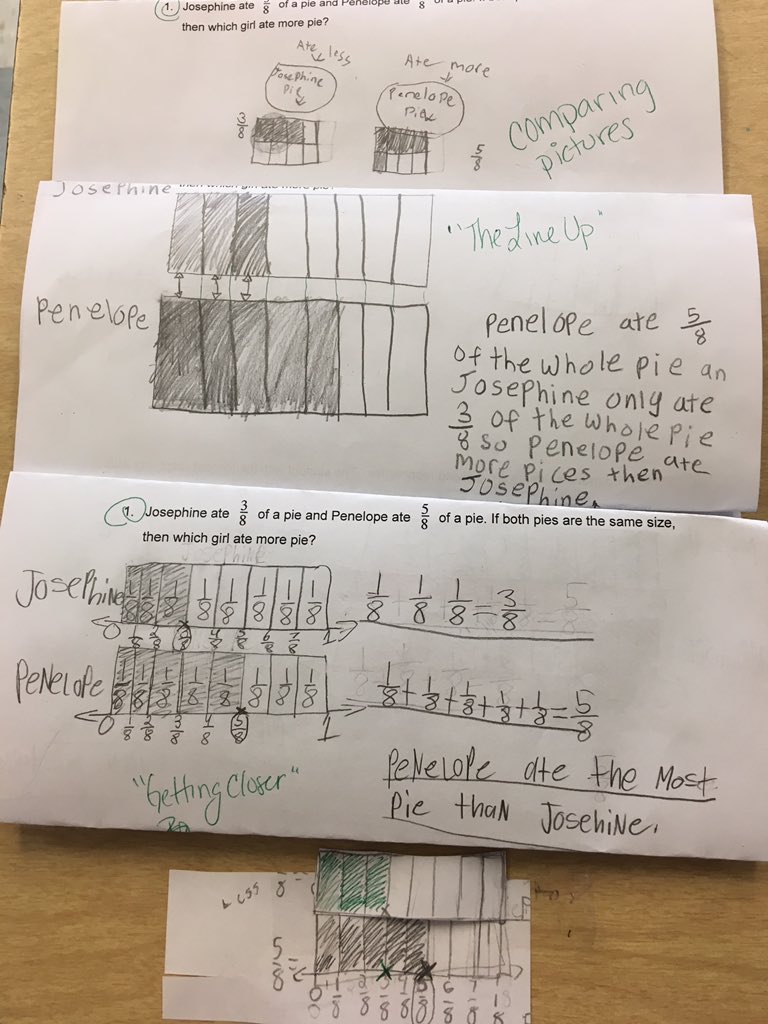 1. Josephine ate 3/8 of a pie and Penelope ate 8
then which girl ate more pie?
Ate less
Ate more
Josephine
Pie
Penelope
Pie
3/8
5/8
Comparing
pictures
Josephine
"The Line Up"
Penelope
Penelope ate 5/8
of the whole pie an
Josephine only ate
3/8 of the whole pie
so Penelope ate
more pices then
Josephine.
1. Josephine ate 3/8 of a pie and Penelope ate 5/8 of a pie. If both pies are the same size,
then which girl ate more pie?
Josephine
1/8 1/8 1/8 1/8 1/8 1/8 1/8 1/8
0 1/8 2/8 3/8 4/8 5/8 6/8 7/8 1
1/8 1/8 1/8 = 3/8
Penelope
1/8 1/8 1/8 1/8 1/8 1/8 1/8 1/8
0 1/8 2/8 3/8 4/8 5/8 1
1/8 + 1/8 + 1/8 + 1/8 + 1/8 = 5/8
"Getting Closer"
Penelope ate the Most
Pie than Josehine.
Less
5/8 =
0 1/8 2/8 3/8 4/8 5/8 6/8 7/8